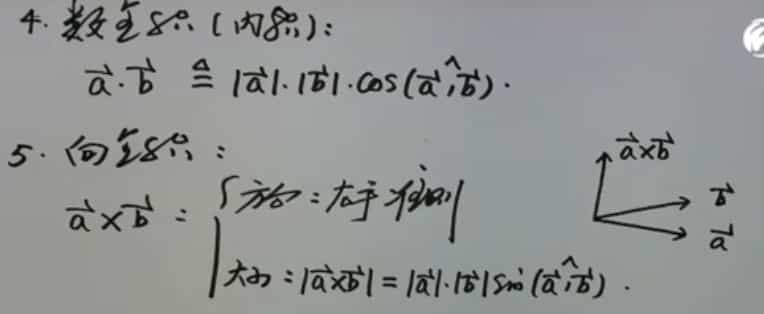 4. 数量积（内积）：
a⃗·b⃗ ≜ |a⃗|·|b⃗|·cos(a⃗,^b⃗).
5. 向量积：
a⃗×b⃗：{方向：右手准则
大小：|a⃗×b⃗| = |a⃗|·|b⃗| sin(a⃗,^b⃗).
a⃗×b⃗
b⃗
a⃗